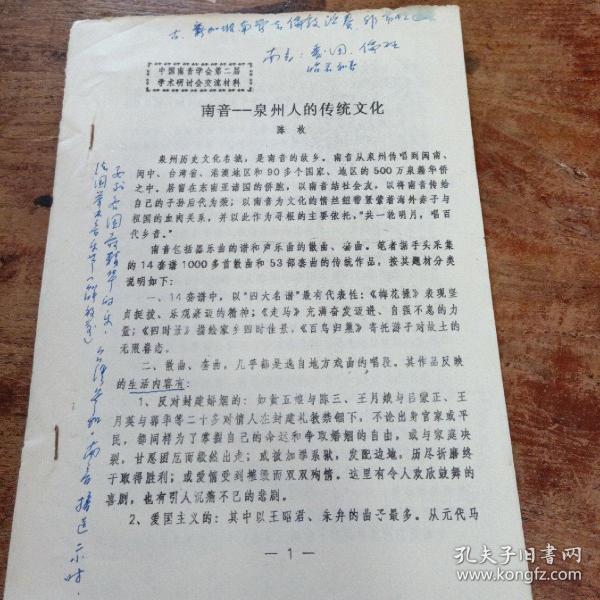 中国南音学会第二届
学术研讨会交流材料
南音——泉州人的传统文化
陈枚
泉州历史文化名城，是南音的故乡。南音从泉州传唱到闽南、
闽中、台湾省、港澳地区和90多个国家、地区的500万泉籍华侨
之中。居留在东南亚诸国的侨胞，以南音结社会友，以将南音传给
自己的子孙后代为荣；以南音为文化的情丝纽带紧萦着海外赤子与
祖国的血肉关系，并以此作为寻根的主要依托，“共一轮明月，唱百
代乡音。”
南音包括器乐曲的谱和声乐曲的散曲、套曲。笔者据手头采集
的14套谱1000多首散曲和53部套曲的传统作品，按其题材分类
说明如下：
一、14套谱中，以“四大名谱”最有代表性：《梅花操》表现坚
贞挺拔、乐观豪迈的精神；《走马》充满奋发迈进、自强不息的力
量；《四时景》描绘家乡四时佳景，《百鸟归巢》寄托游子对故土的
无限眷恋。
二、散曲、套曲，几乎都是选自地方戏曲的唱段。其作品反映
的生活内容有：
1、反对封建婚姻的：如黄五娘与陈三、王月娥与吕蒙正、王
月英与郭华等二十多对情人在封建礼教禁锢下，不论出身官家或平
民，都同样为了掌握自己的命运和争取婚姻的自由，或与家庭决
裂，甘愿困厄而毅然出走；或被加罪系狱，发配边地，历尽折磨终
于取得胜利；或爱情受到摧残而双双殉情。这里有令人欢欣鼓舞的
喜剧，也有引人沉痛不已的悲剧。
2、爱国主义的：其中以王昭君、朱弁的曲子最多。从元代马
— 1 —
孔夫子旧书网
www.kongfz.com